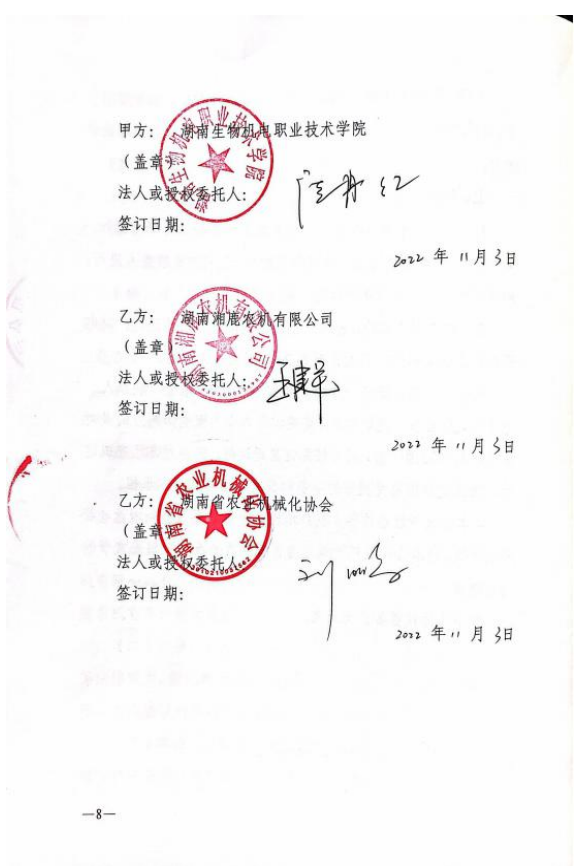 甲方: 湖南生物机电职业技术学院
(盖章)
法人或授权委托人:
签订日期:
2022 年 11月 3日
乙方: 湖南湘鹿农机有限公司
(盖章)
法人或授权委托人:
签订日期:
2022 年 11月 3日
乙方: 湖南省农业机械化协会
(盖章)
法人或授权委托人:
签订日期:
2022 年 11月 3日
—8—